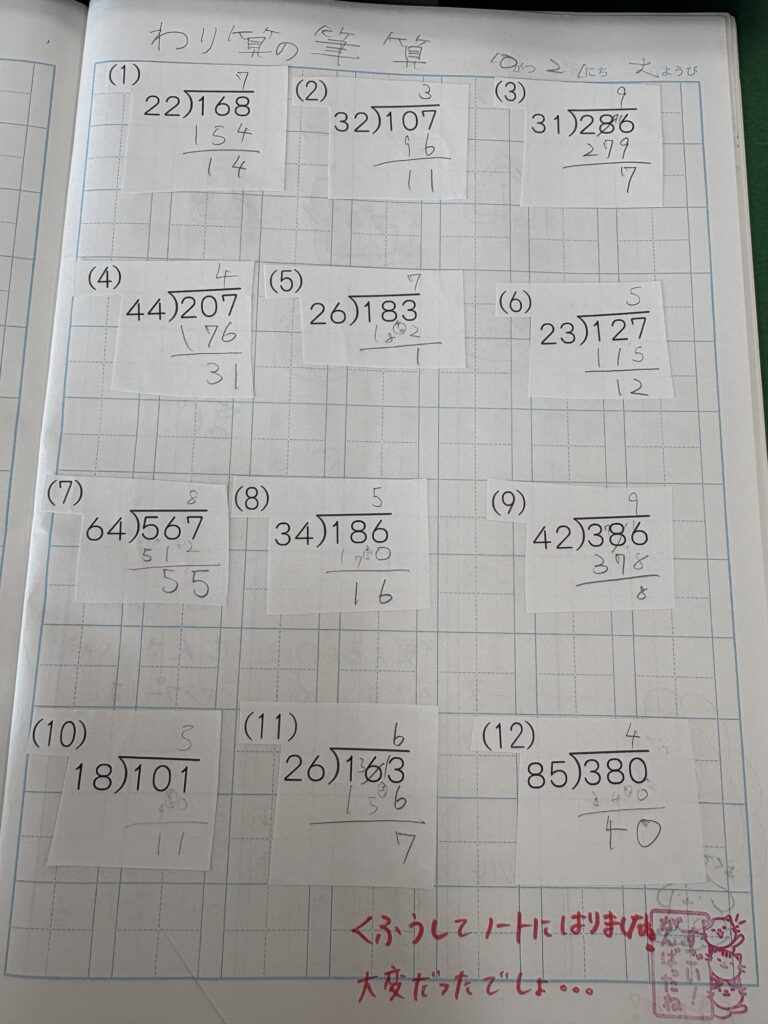 わり算の筆算 10がつ2にち 火ようび
(1)
7
22)168
154
14
(2)
3
32)107
96
11
(3)
9
31)286
279
7
(4)
4
44)207
176
31
(5)
7
26)183
182
1
(6)
5
23)127
115
12
(7)
8
64)567
512
55
(8)
5
34)186
170
16
(9)
9
42)386
378
8
(10)
5
18)101
90
11
(11)
6
26)163
156
7
(12)
4
85)380
340
40
くふうしてノートにはりましたね!
大変だったでしょ...
すごい!
がんばったね